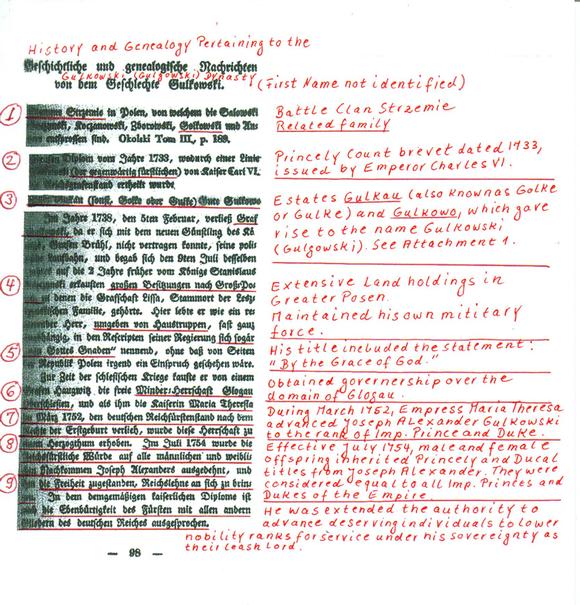 History and Genealogy Pertaining to the
Geschichtliche und genealogische Nachrichten
Gulkowski (Gulgowski) Dynasty
von dem Geschlechte Gulkowski.
(First Name not identified)
1
Strzemie in Polen, von welchem die Salowski
Koczanowski, Zborowski, Golkowski und An-
entsprossen sind. Okolski Tom III., p. 189.
Battle Clan Strzemie
Related family
2
Diplom vom Jahre 1733, wodurch einer Linie
(der gegenwärtig fürstlichen) von Kaiser Carl VI.
Reichsgrafenstand ertheilt wurde.
Princely Count brevet dated 1733,
issued by Emperor Charles VI.
3
Gulkau (sonst, Golke oder Gulke) Gute Gulkowo
Estates Gulkau (also known as Golke
or Gulke) and Gulkowo, which gave
rise to the name Gulkowski
(Gulgowski). See Attachment 1.
Im Jahre 1738, den 5ten Februar, verließ Graf
da er sich mit dem neuen Günstling des Kö-
Grafen Brühl, nicht vertragen konnte, seine poli-
Laufbahn, und begab sich den 9ten Juli desselben
auf die 2 Jahre früher vom Könige Stanislaus
4
erkauften großen Besitzungen nach Groß-Po-
zu denen die Grafschaft Lissa, Stammort der Lesz-
Familie, gehörte. Hier lebte er wie ein re-
Herr, umgeben von Haustruppen, fast ganz
in den Rescripten seiner Regierung sich sogar
Extensive Land holdings in
Greater Posen.
Maintained his own military
force.
5
Gottes Gnaden" nennend, ohne daß von Seiten
Republik Polen irgend ein Einspruch geschehen wäre.
His title included the statement:
"By the Grace of God."
Zur Zeit der schlesischen Kriege kaufte er von einem
6
Haugwitz die freie Minder-Herrschaft Glogau
Oberschlesien, und als ihm die Kaiserin Maria Theresia
Obtained governership over the
domain of Glogau.
7
März 1752, den deutschen Reichsfürstenstand nach dem
Rechte der Erstgeburt verlieh, wurde diese Herrschaft zu
During March 1752, Empress Maria Theresa
advanced Joseph Alexander Gulkowski
to the rank of Imp. Prince and Duke.
8
Herzogthum erhoben. Im Juli 1754 wurde die
Reichsfürstliche Würde auf alle männlichen und weibli-
Nachkommen Joseph Alexanders ausgedehnt, und
Effective July 1754, male and female
offspring inherited Princely and Ducal
titles from Joseph Alexander. They were
considered equal to all Imp. Princes and
Dukes of the Empire.
9
die Freiheit zugestanden, Reichslehne an sich zu brin-
In dem demgemäßigen kaiserlichen Diplome ist
die Ebenbürtigkeit des Fürsten mit allen andern
Gliedern des deutschen Reiches ausgesprochen.
He was extended the authority to
advance deserving individuals to lower
nobility ranks for service under his sovereignty as
their leash lord.
— 98 —